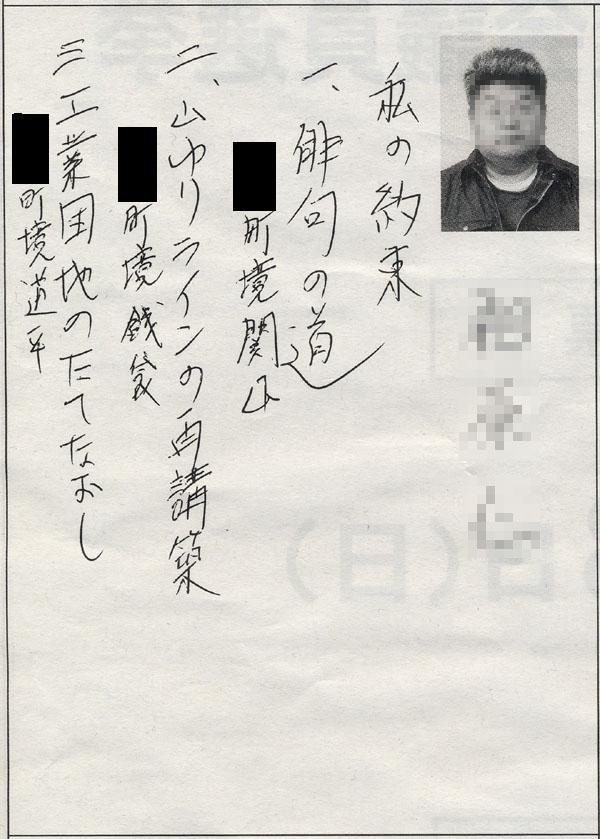 私の約束
一、俳句の道
町境関山
二、山ゆりラインの再講築
町境銭袋
三 工業団地のたてなおし
町境道平